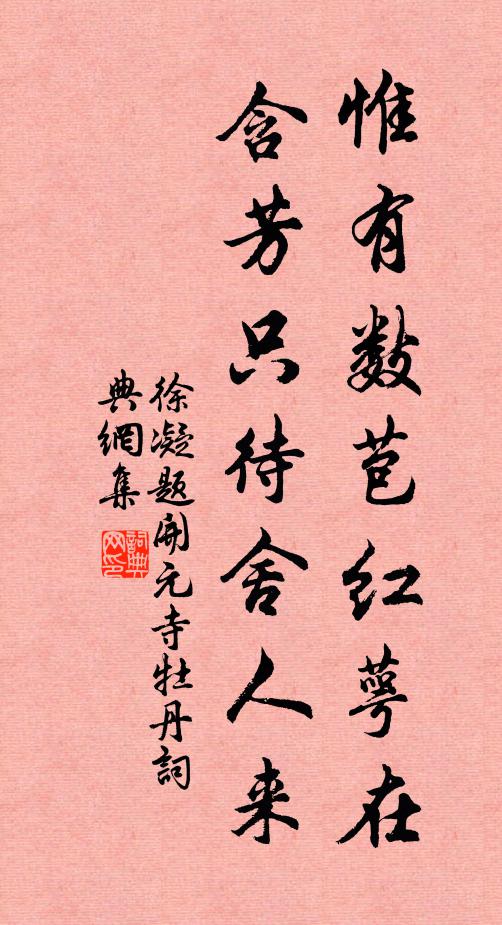 惟有数苞红萼在
含芳只待舍人来
徐凝题開元寺牡丹詞
典網集
詞典
网印